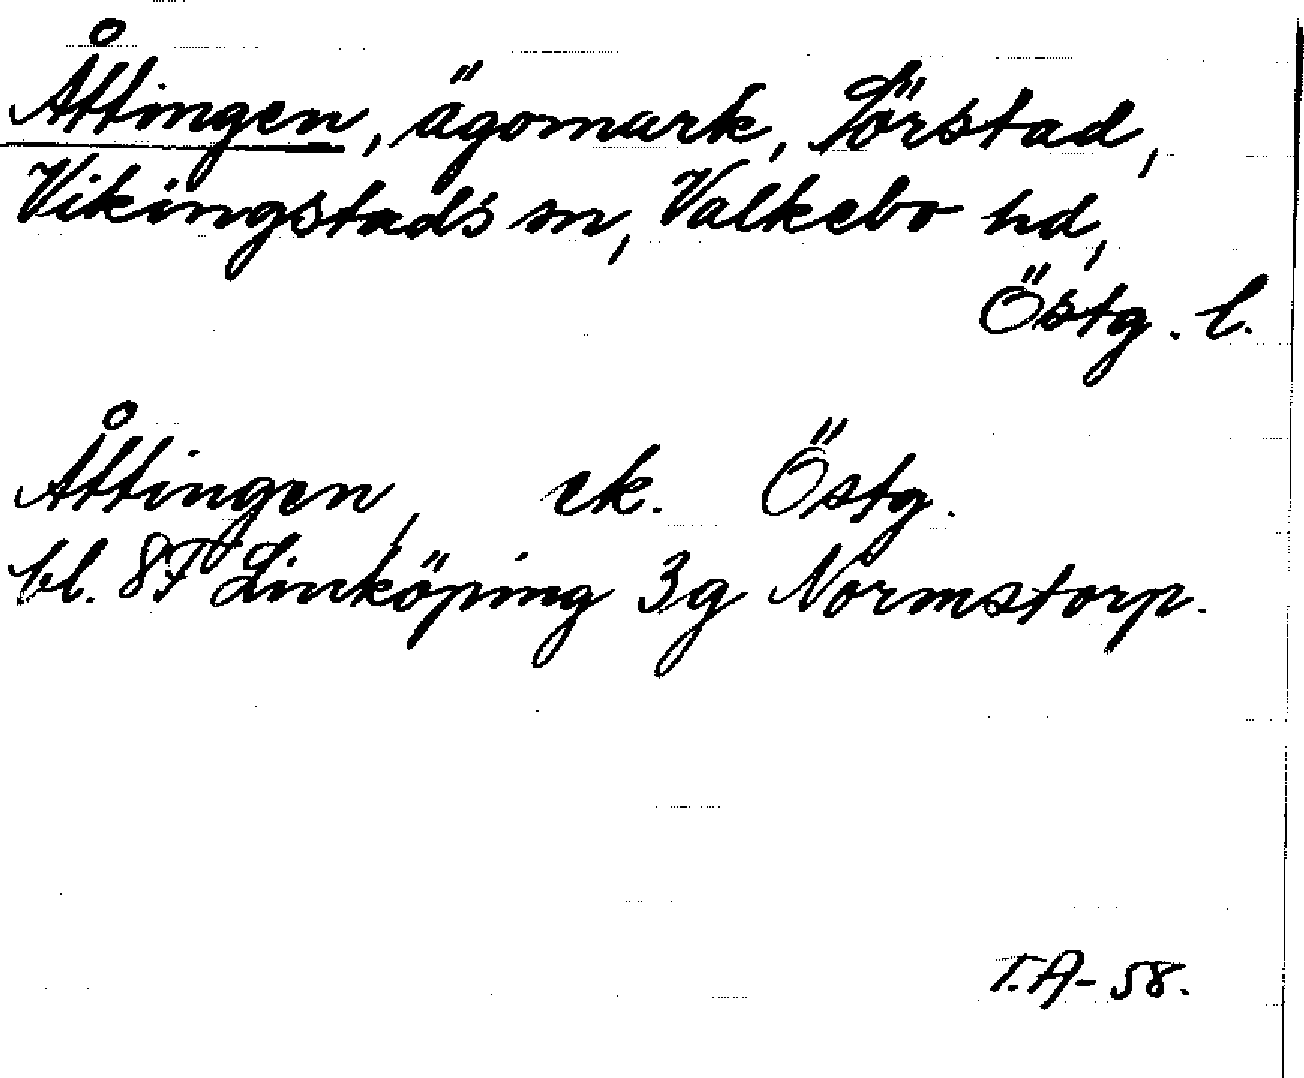 Åttingen, ägomark, Lörstad,
Vikingstads sn, Valkebo hd,
Östg. l.
Åttingen, ek. Östg.
bl. 8F Linköping 3g Normstorp.
T.A-58.